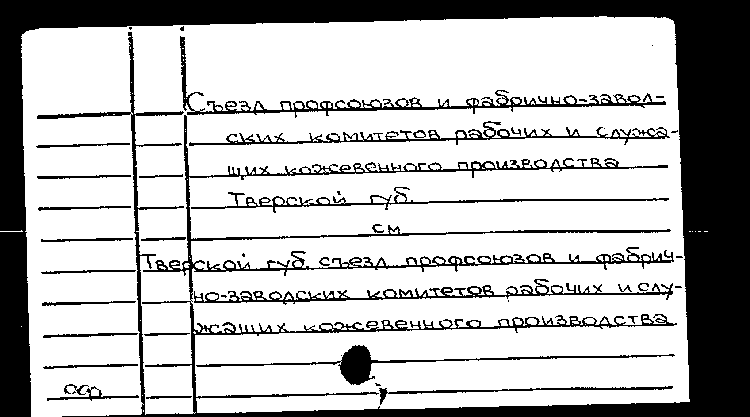 Съезд профсоюзов и фабрично-завод-
ских комитетов рабочих и служа-
щих кожевенного производства
Тверской губ.
см
Тверской губ. съезд профсоюзов и фабрич-
но-заводских комитетов рабочих и слу-
жащих кожевенного производства